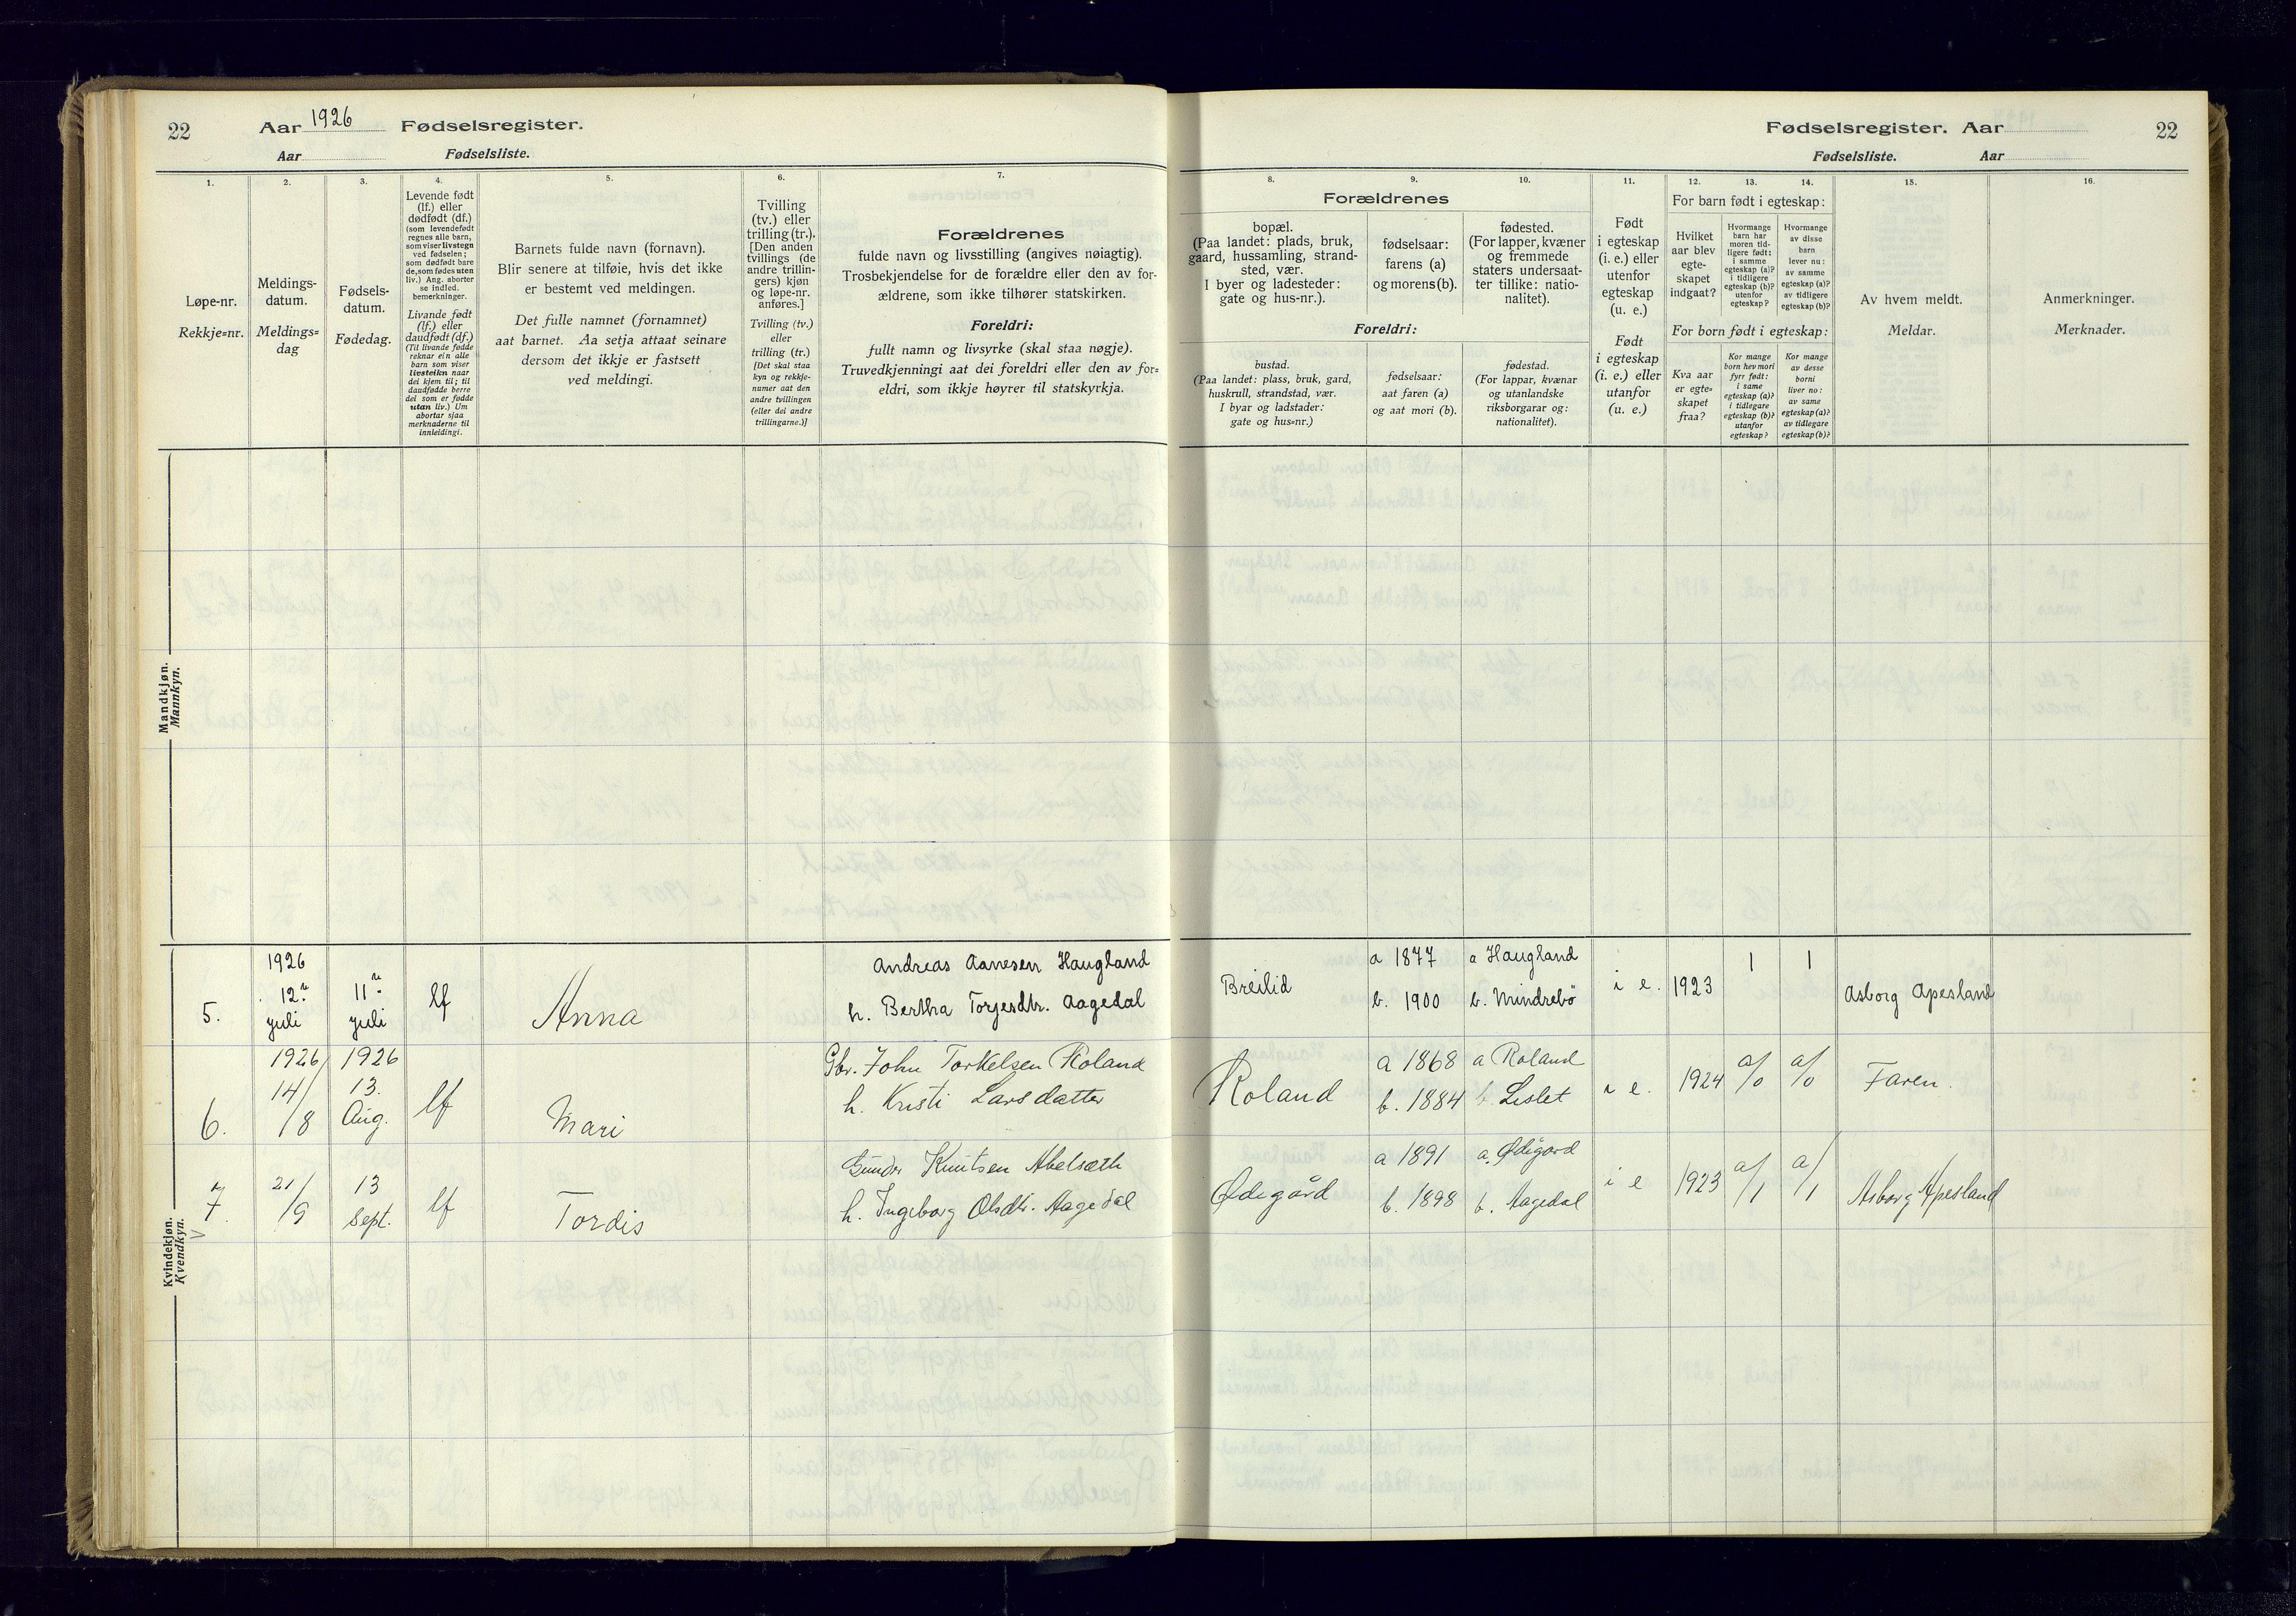 22
Aar 1926 Fødselsregister.
Aar Fødselsliste.
1.
2.
3.
4.
5.
6.
7.
Løpe-nr.
Rekkje=nr.
Meldings-
datum.
Meldings=
dag
Fødsels-
datum.
Fødedag.
Levende født
(lf.) eller
dødfødt (df.)
(som levendefødt
regnes alle barn,
som viser livstegn
ved fødselen;
som dødfødt bare
de, som fødes uten
liv.) Ang. aborter
se indled.
bemerkninger.
Livande født
(lf.) eller
daudfødt (df.)
(Til livande fødde
reknar ein alle
barn som viser
livsteikn naar
dei kjem til; til
daudfødde berre
dei som er fødde
utan liv.) Um
abortar sjaa
merknaderne til
innleidingi.
Barnets fulde navn (fornavn).
Blir senere at tilføie, hvis det ikke
er bestemt ved meldingen.
Det fulle namnet (fornamnet)
aat barnet. Aa setja attaat seinare
dersom det ikkje er fastsett
ved meldingi.
Tvilling
(tv.) eller
trilling (tr.).
[Den anden
tvillings (de
andre trillin-
gers) kjøn
og løpe-nr.
anføres.]
Tvilling (tv.)
eller
trilling (tr.)
[Det skal staa
kyn og rekkje-
numer aat den
andre tvillingen
(eller dei andre
trillingarne.)]
Forældrenes
fulde navn og livsstilling (angives nøiagtig).
Trosbekjendelse for de forældre eller den av for-
ældrene, som ikke tilhører statskirken.
Foreldri:
fullt namn og livsyrke (skal staa nøgje).
Truvedkjenningi aat dei foreldri eller den av for=
eldri, som ikkje høyrer til statskyrkja.
Mandkjøn.
Mannkyn.
Kvindekjøn.
Kvendkyn.
5.
1926
12.
juli
11
juli
lf
Anna
Andreas Aanesen Haugland
h. Bertha Torjesdtr. Aagedal
6.
1926
14/8
1926
13.
Aug.
lf
Mari
Gbr. John Torkelsen Roland
h. Kristi Larsdatter
7.
21/9
13
sept.
lf
Tordis
Knutsen Abelseth
h. Ingeborg Olsdtr. Aagedal
Fødselsregister. Aar
22
Fødselsliste. Aar
8.
9.
10.
11.
12.
13.
14.
15.
16.
Forældrenes
bopæl.
(Paa landet: plads, bruk,
gaard, hussamling, strand-
sted, vær.
I byer og ladesteder:
gate og hus-nr.).
fødselsaar:
farens (a)
og morens (b).
fødested.
(For lapper, kvæner
og fremmede
staters undersaat-
ter tillike: natio-
nalitet).
Foreldri:
bustad.
(Paa landet: plass, bruk, gard,
huskrull, strandstad, vær.
I byar og ladstader:
gate og hus=nr.)
fødselsaar:
aat faren (a)
og aat mori (b).
fødestad.
(For lappar, kvænar
og utanlandske
riksborgarar og:
nationalitet).
Født
i egteskap
(i. e.) eller
utenfor
egteskap
(u. e.)
Født
i egteskap
(i. e.) eller
utanfor
(u. e.)
For barn født i egteskap:
Hvilket
aar blev
egte-
skapet
indgaat?
Hvormange
barn har
moren tid-
ligere født:
i samme
egteskap (a)?
i tidligere
egteskap (b)?
utenfor
egteskap?
Hvormange
av disse
barn
lever nu:
av samme
egteskap (a)?
av tidligere
egteskap (b)?
For born født i egteskap:
Kva aar
er egte=
skapet
fraa?
Kor mange
born hev mori
fyrr født:
i same
egteskap (a)?
i tidlegare
egteskap (b)?
utanfor
egteskap?
Kor mange
av desse
borni
liver no:
av same
egteskap (a)?
av tidlegare
egteskap (b)?
Av hvem meldt.
Meldar.
Anmerkninger.
Merknader.
Breilid
a 1877
b. 1900
a Haugland
b. Mindrebö
i e.
1923
1
1
Asborg Apesland
Roland
a 1868
b. 1884
a Roland
b. Lislet
i e.
1924
a/0
a/0
Faren.
Ødegård
a 1891
b. 1898
a. Ødigord
b. Aagedal
i e
1923
a/1
a/1
Asborg Apesland